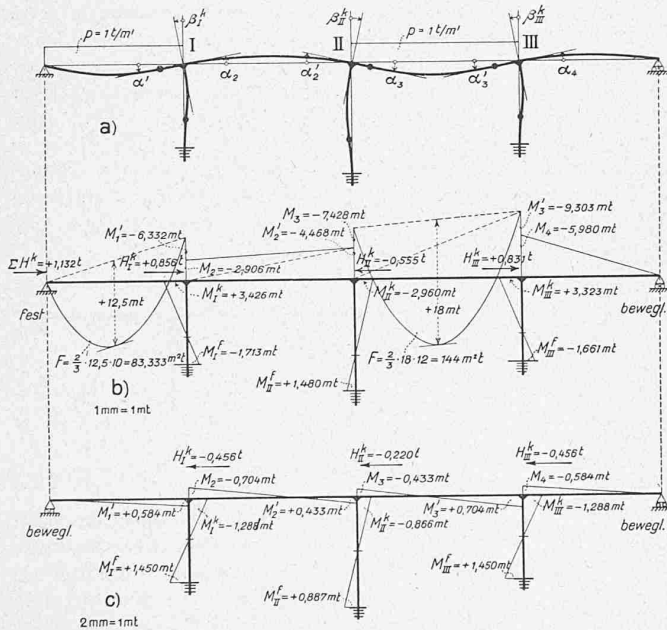 β_I^k
β_II^k
β_III^k
p = 1 t/m'
I
II
p = 1 t/m'
III
α'
α_2
α_2'
α_3
α_3'
α_4
a)
M_3 = −7,428 mt
M_3' = −9,303 mt
M_1' = −6,332 mt
M_2' = −4,468 mt
M_4 = −5,980 mt
ΣH^k = +1,132 t
H_I^k = +0,856 t
M_2 = −2,906 mt
H_II^k = −0,555 t
H_III^k = +0,831 t
+12,5 mt
M_I^k = +3,426 mt
M_II^k = −2,960 mt
M_III^k = +3,323 mt
fest
+18 mt
bewegl.
F = 2/3 · 12,5 · 10 = 83,333 m²t
M_I^F = −1,713 mt
F = 2/3 · 18 · 12 = 144 m²t
M_III^F = −1,661 mt
b)
M_II^F = +1,480 mt
1 mm = 1 mt
H_I^k = −0,456 t
H_II^k = −0,220 t
H_III^k = −0,456 t
M_2 = −0,704 mt
M_3 = −0,433 mt
M_4 = −0,584 mt
bewegl.
M_1' = +0,584 mt
M_I^k = −1,288 mt
M_2' = +0,433 mt
M_II^k = −0,866 mt
M_3' = +0,704 mt
M_III^k = −1,288 mt
bewegl.
M_I^F = +1,450 mt
M_III^F = +1,450 mt
M_II^F = +0,887 mt
c)
2 mm = 1 mt